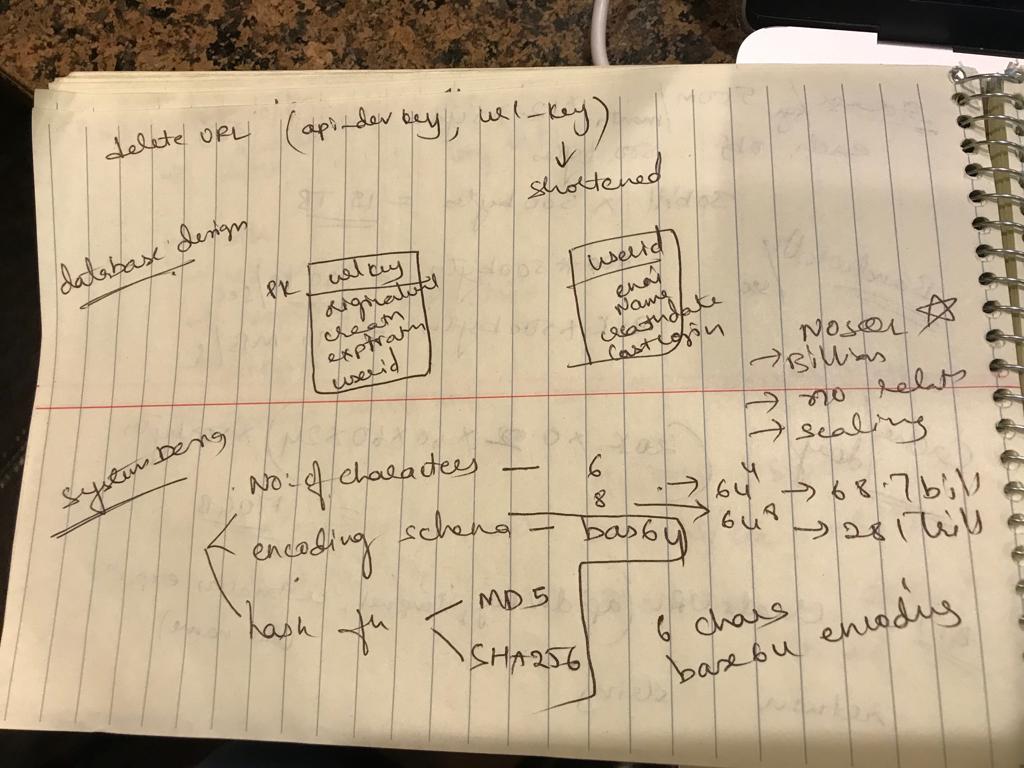 delete URL (api_dev key, url_key)
↓
shortened
database design
PK urlkey
originalurl
creatn
expiratn
userid
userid
email
Name
creatndate
Lastlogin
NOSQL ☆
→ Billions
→ no relats
→ scaling
system Desing
No. of characters — 6
8
→ 64^4 → 68.7 bill
→ 64^8 → 281 trill
encoding schema — bas64
hash fn
MD5
SHA256
6 chars
base64 encoding